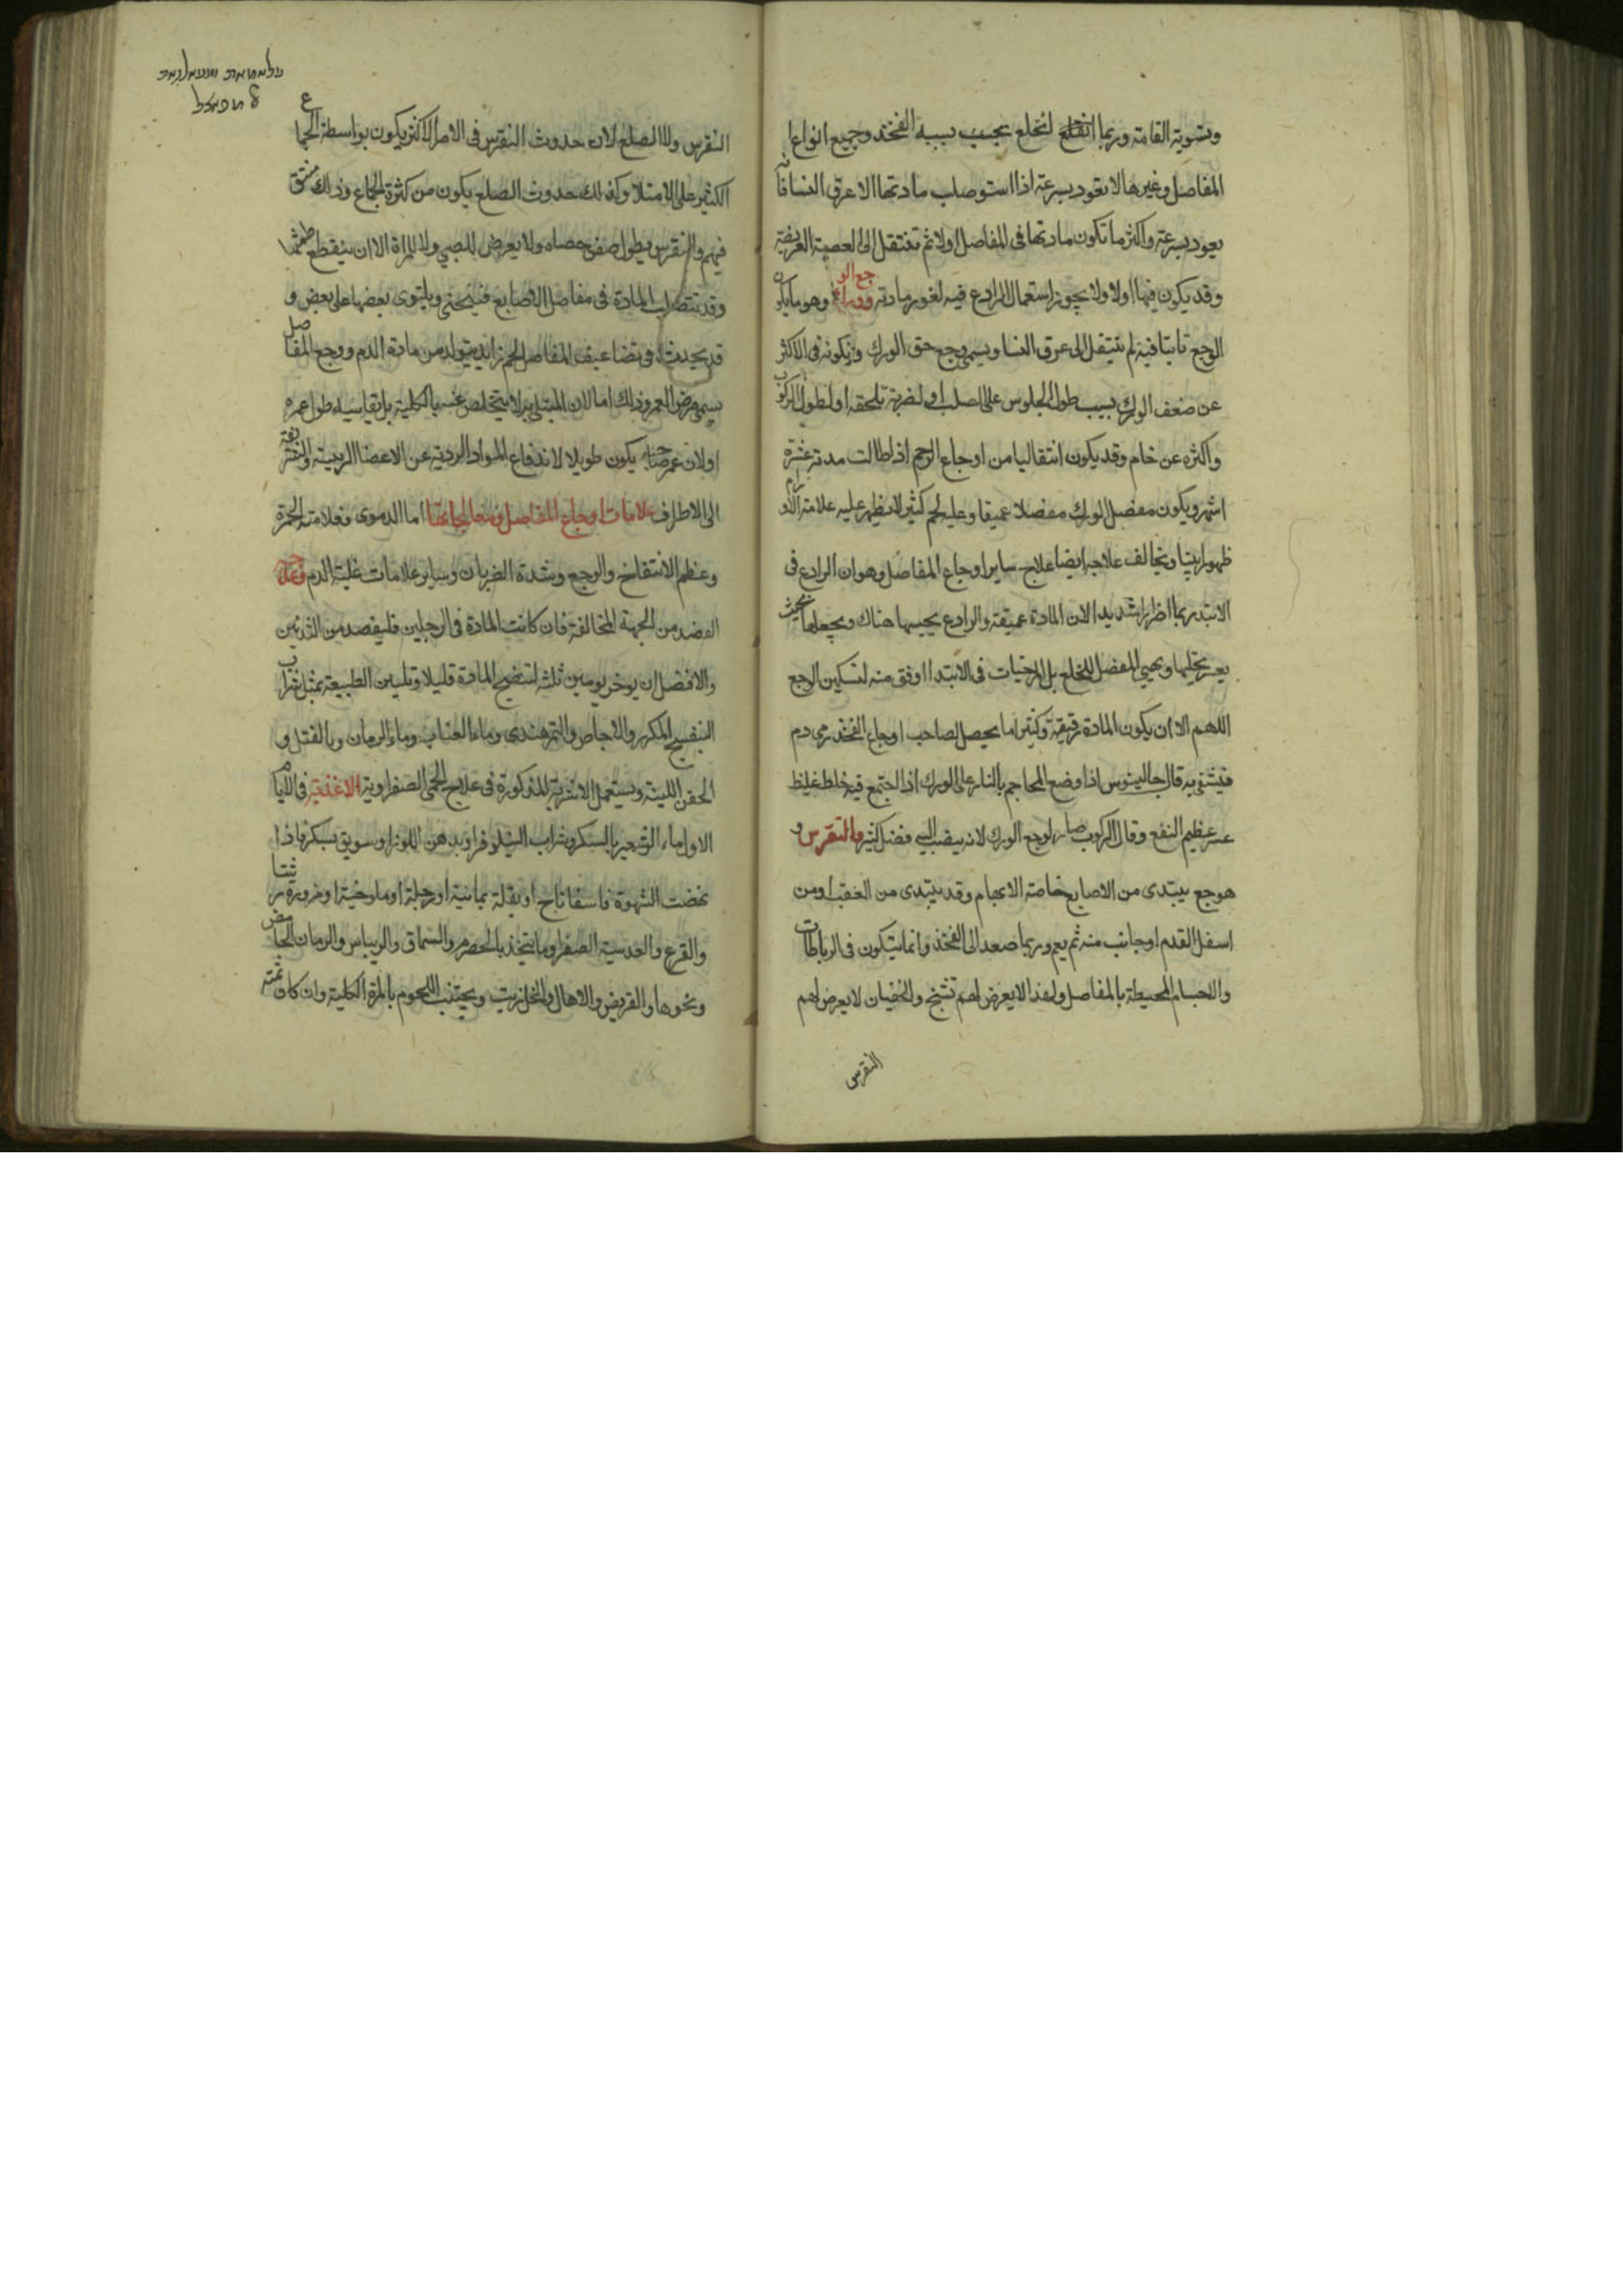 وتسوية القامة وربما انقلع لنخلع يجيب بسببه الفخذ وجميع انواع
المفاصل وغيرها لا يعود بسرعة اذا استوصلب مادتها الا عرق النسا فانه
يعود بسرعة واكثر ما تكون مادتها فى المفاصل اولا ثم تنتقل الى العصبة العريضة
وقد يكون فيها اولا ولا يجوز استعمال الرادع فيه لغور مادته ووجع الورك وهو ما يكون
الوجع ثابتا فيه لم ينتقل الى عرق النسا ويسمى وجع حق الورك وتكونه فى الاكثر
عن ضعف الورك بسبب طول الجلوس على الصلب او لضربة تلحقه او لطول الركوب
واكثره عن خام وقد يكون انتقاليا من اوجاع الرحم اذا طالت مدته عشرة
اشهر ويكون مفصل الورك مفصلا عميقا وعليه لحم كثير لا يظهر عليه علامة الاورام
ظهورا بينا ويخالف علاجه ايضا علاج ساير اوجاع المفاصل وهو ان الرادع فى
الابتدا ربما اضر اضرارا شديدا لان المادة عميقة والرادع يحبسها هناك ويجعلها بحيث
يعسر تحليلها ويهيى المفصل للخلع بل المرخيات فى الابتدا اوفق منه لتسكين الوجع
اللهم الا ان يكون المادة رقيقة وكثيرا ما يحصل لصاحب اوجاع الفخذ رمى دم
فيشفى به قال جالينوس اذا وضع المحاجم بالنار على الورك اذا اجتمع فيه خلط غليظ
عسر عظيم النفع وقال الركوب صار لوجع الورك لانه يصب اليه فضل كثير والنقرس و
هو وجع يبتدى من الاصابع خاصة الابهام وقد يبتدى من العقب او من
اسفل القدم او جانب منه ثم يعم وربما صعد الى الفخذ وانما يتكون فى الرباطات
والاجسام المحيطة بالمفاصل ولهذا لا يعرض لهم تشنج والخصيان لا يعرض لهم
النقرس
النقرس ولا الصلع لان حدوث النقرس فى الامر الاكثر يكون بواسطة الجماع
الكثير على الامتلا وكذلك حدوث الصلع يكون من كثرة الجماع وذلك
فيهم والنقرس يطول صفن خصاه ولا يعرض للصبى ولا للمراة الا ان ينقطع طمثها
وقد تنصب المادة فى مفاصل الاصابع فينحنى ويلتوى بعضها على بعض و
قد يحدث فى تضاعيف المفاصل لحم زايد يتولد من مادة الدم ووجع المفاصل
يسمى مرض العمر وذلك اما لان المبتلى به لا يتخلص عنه بالكلية بل يقاسيه طول عمره
او لان عمر صاحبه يكون طويلا لاندفاع المواد الردية عن الاعضا الرييسة والشريفة
الى الاطراف علامات اوجاع المفاصل ومعالجاتها اما الدموى فعلامته الحمرة
وعظم الانتفاخ والوجع وشدة الضربان وساير علامات غلبة الدم وعلاجه
الفصد من الجهة المخالفة فان كانت المادة فى الرجلين فليفصد من
والافضل ان يوخر يومين ثلثة لتنضج المادة قليلا وتليين الطبيعة بمثل شراب
البنفسج المكرر والاجاص والتمر هندى وماء العناب وماء الرمان وبالفتل و
الحقن اللينة ويستعمل الاشربة المذكورة فى علاج الحمى الصفراوية الاغذية فى الايام
الاول ماء الشعير بالسكر وشراب النيلوفر او بدهن اللوز او سويق بسكر فاذا
نهضت الشهوة فاسفاناخ او بقلة يمانية او رجلة او ملوخية او مزورة
والقرع والعدسية الصفرا وما يتخذ بالحصرم والسماق والريباس والرمان الحامض
ونحوها والقريض والاهال والخل زيت ويجتنب اللحوم بالمرة الكلية وان كان ثمة